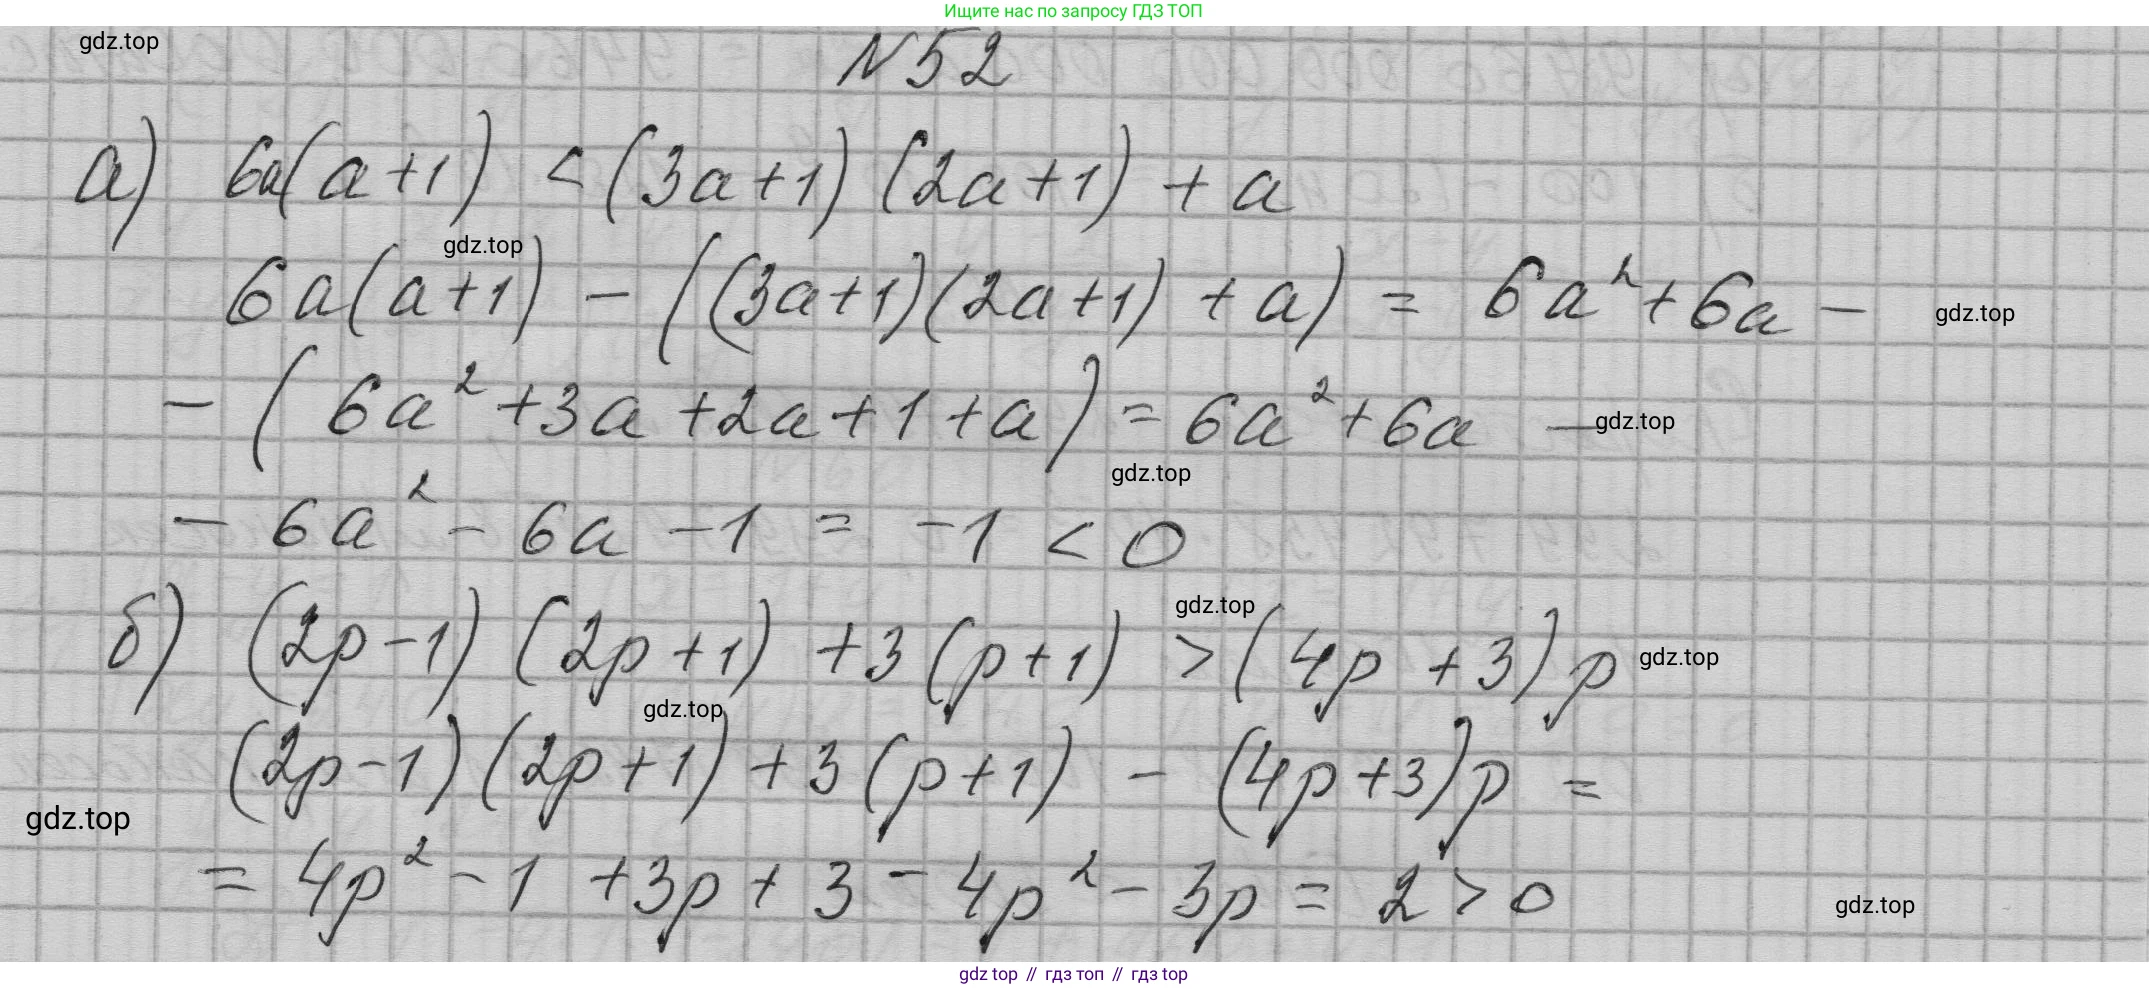 Ищите нас по запросу ГДЗ ТОП
gdz.top
N 52
а) 6a(a+1) < (3a+1)(2a+1) + a
gdz.top
6a(a+1) - ((3a+1)(2a+1) + a) = 6a²+6a -
gdz.top
- (6a²+3a+2a+1+a) = 6a²+6a -
gdz.top
gdz.top
- 6a² - 6a - 1 = -1 < 0
gdz.top
б) (2p-1)(2p+1) + 3(p+1) > (4p+3)p
gdz.top
gdz.top
(2p-1)(2p+1) + 3(p+1) - (4p+3)p =
gdz.top
= 4p² - 1 + 3p + 3 - 4p² - 3p = 2 > 0
gdz.top
gdz top // гдз топ // гдз top